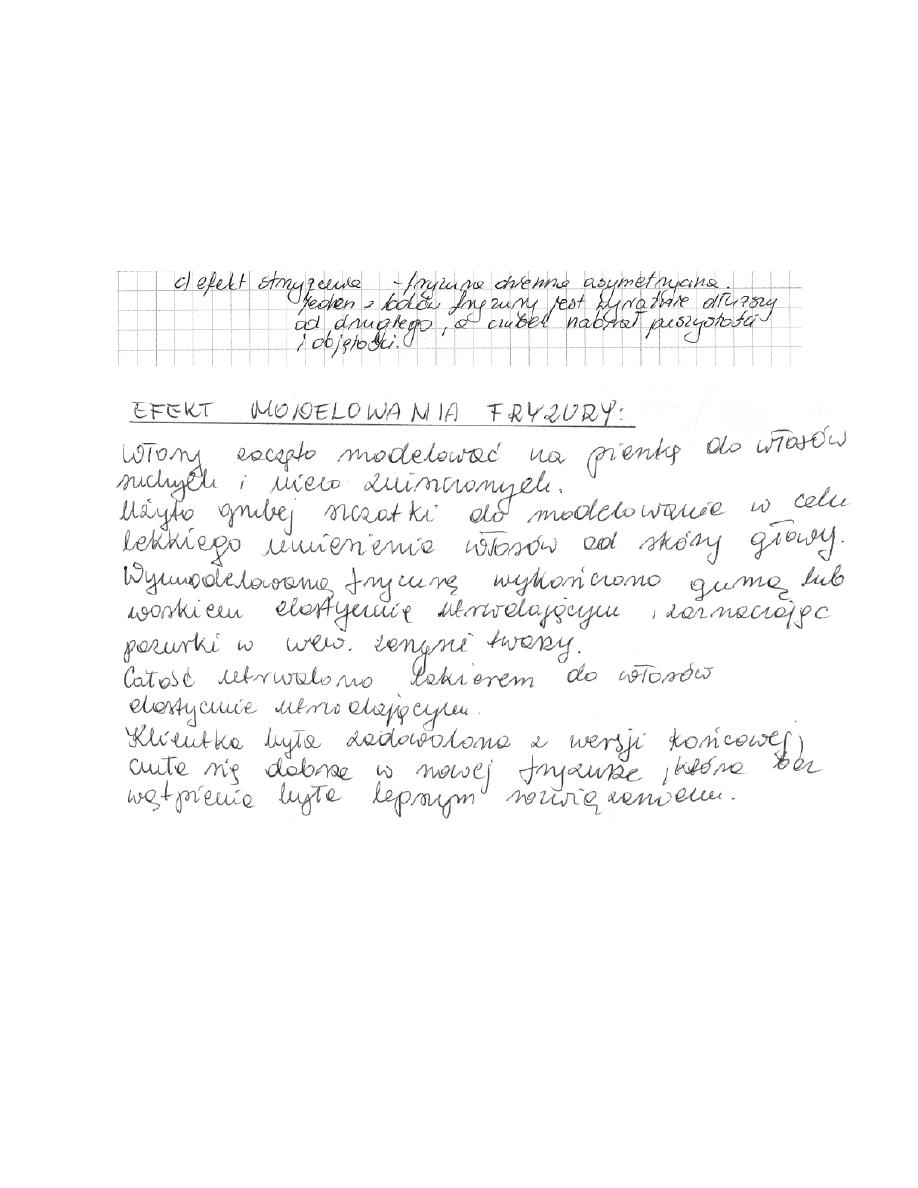 c) efekt strzyżenia - fryzura dzienna asymetryczna.
Jeden z boków fryzury jest wyraźnie dłuższy
od drugiego, a czubek nabrał puszystości
i objętości.
EFEKT MODELOWANIA FRYZURY:
Włosy zaczęto modelować na piankę do włosów
suchych i nieco zniszczonych.
Użyto grubej szczotki do modelowania w celu
lekkiego uniesienia włosów od skóry głowy.
Wymodelowaną fryzurę wykończono gumą lub
woskiem elastycznie utrwalającym, zaznaczając
pazurki w wew. zonynie twarzy.
Całość utrwalono lakierem do włosów
elastycznie utrwalającym.
Klientka była zadowolona z wersji końcowej,
czuła się dobrze w nowej fryzurze, która bez
wątpienia była lepszym rozwiązaniem.